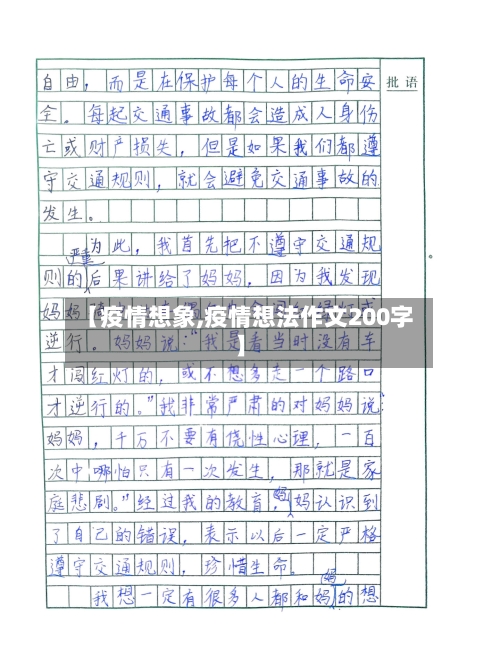 自由，而是在保护每个人的生命安
批语
全。每起交通事故都会造成人身伤
亡或财产损失，但是如果我们都遵
守交通规则，就会避免交通事故的
发生。
为此，我首先把不遵守交通规
则的严重后果讲给了妈妈，因为我发现
妈妈
【疫情想象,疫情想法作文200字
】
逆行。妈妈说："我是看当时没有车
才闯红灯的，或不想多走一个路口
才逆行的。"我非常严肃的对妈妈说：
妈妈，千万不要有侥性心理，一百
次中哪怕只有一次发生，那就是家
庭悲剧。"经过我的教育，妈妈认识到
了自己的错误，表示以后一定严格
遵守交通规则，珍惜生命。
我想一定有很多人都和妈妈的想